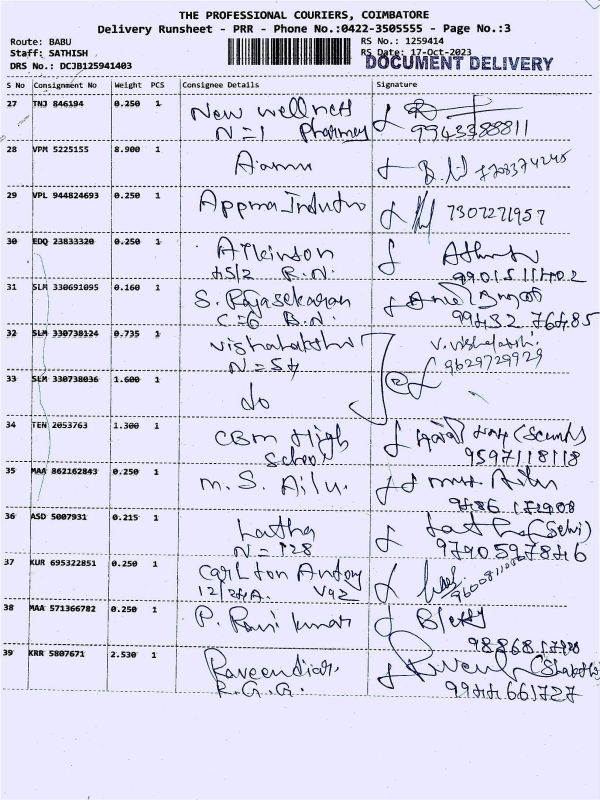 THE PROFESSIONAL COURIERS, COIMBATORE
Delivery Runsheet - PRR - Phone No.:0422-3505555 - Page No.:3
Route: BABU RS No.: 1259414
Staff: SATHISH RS Date: 17-Oct-2023
DRS No.: DCJB125941403 DOCUMENT DELIVERY
S No Consignment No Weight PCS Consignee Details Signature
27 TNJ 846194 0.250 1 New wellness
N=1 Pharmacy 9943388811
28 VPM 5225155 8.900 1
29 VPL 944824693 0.250 1 7307271957
30 EDQ 23833320 0.250 1 Atkinson
45/2 R.N.
31 SLM 330691095 0.160 1 S. Rajasekaran
C=6 B.N. 99432 76485
32 SLM 330738124 0.735 1 Vishalakshi V. Vishalakshi
N=54 9629729929
33 SLM 330738036 1.600 1 do
34 TEN 2053763 1.300 1 CBM High
School 9597118118
35 MAA 862162843 0.250 1 M.S. Ailu.
36 ASD 5007931 0.215 1 Latha Latha (Selvi)
N=128 9790597846
37 KUR 695322851 0.250 1 Carlton Antony
12/24A.
38 MAA 571366782 0.250 1 P. Ravi Kumar
39 KRR 5807671 2.530 1 Raveendiar.
R.G.G. 9944661727